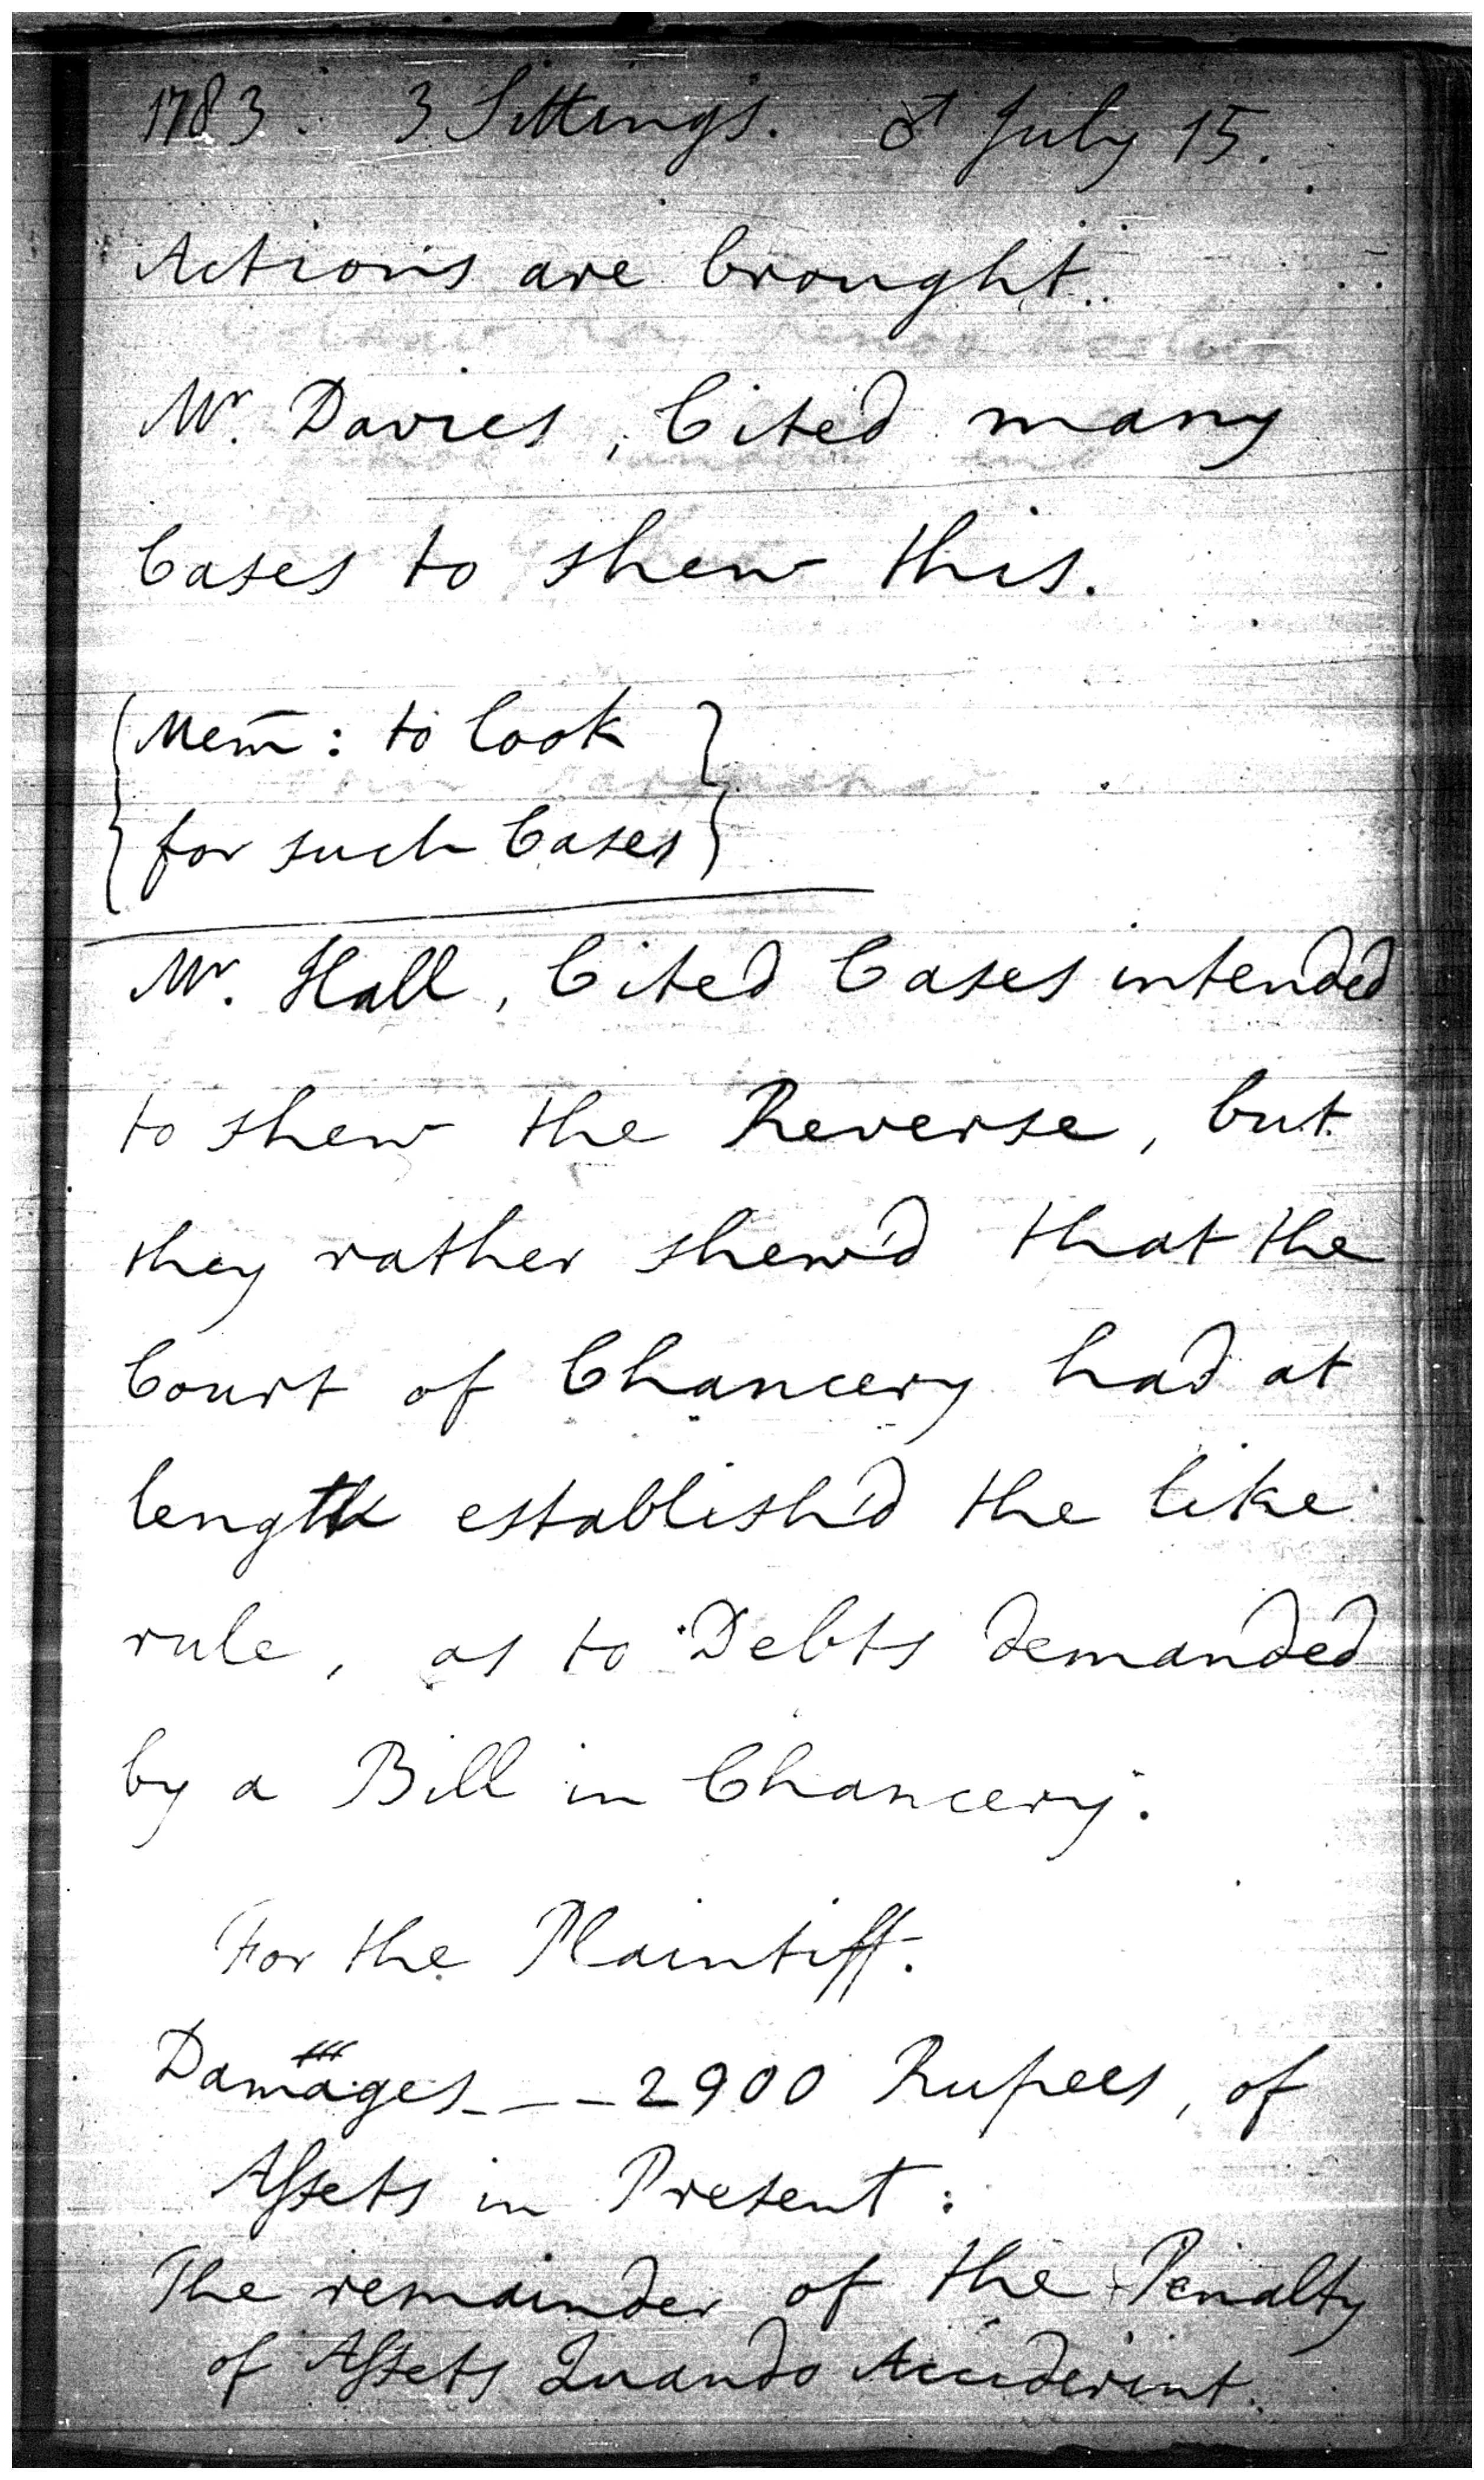 1783. 3 Sittings. ♂ July 15.
Actions are brought.
Mr. Davies, Cited many
Cases to shew this.
{Mem̄: to look}
{for such Cases}
Mr. Hall, Cited Cases intended
to shew the Reverse, but
they rather shew'd that the
Court of Chancery had at
length establish'd the like
rule, as to Debts demanded
by a Bill in Chancery.
For the Plaintiff.
Damages - - - 2900 Rupees, of
Assets in Present:
The remainder of the Penalty
of Assets Quando Acciderint.